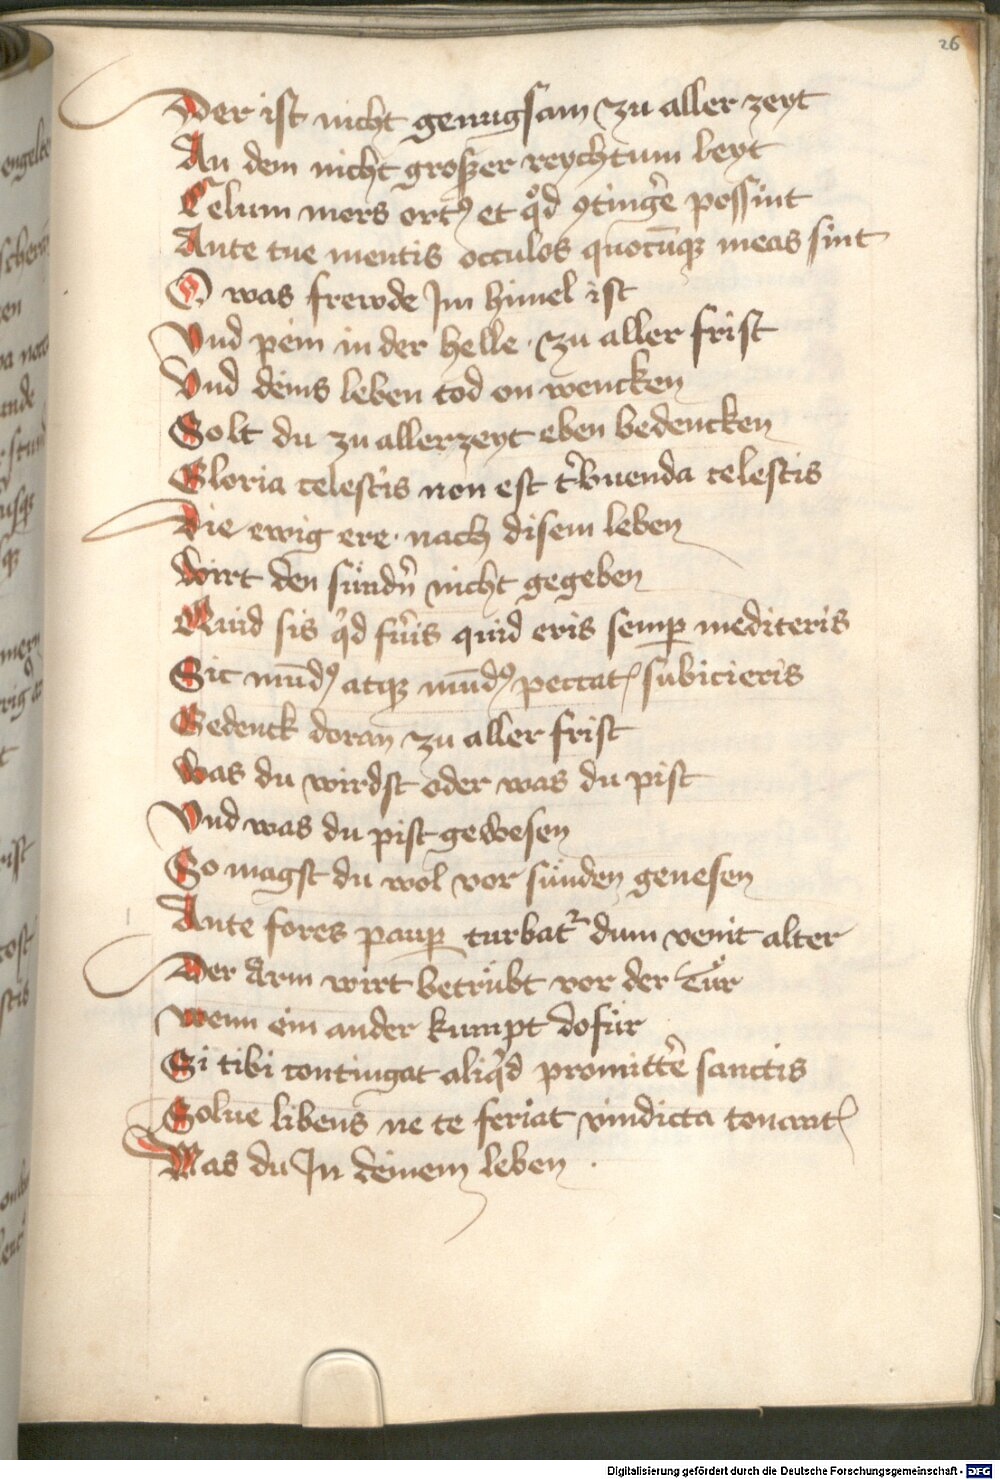 26
Der ist nicht genugsam zu aller zeyt
An dem nicht groszer reychtum leyt
Celum mors ortꝰ et qͦd ꝯtingͤe possint
Ante tue mentis occulos quocūqꝫ meas sint
O was frewde Im himel ist
Vnd pein in der helle · zu aller frist
Vnd deins leben tod on wencken
Solt du zu allerzeyt eben bedencken
Gloria celestis non est tͥbuenda celestis
Die ewig ere · nach disem leben
Wirt den sündn̄ nicht gegeben
Quid sis qͥd fuͥis quid eris semꝑ mediteris
Sic mūdꝰ atqꝫ mūdꝰ peccatꝭ subicieris
Gedenck doran zu aller frist
Was du wirdst oder was du pist
Vnd was du pist gewesen
So magst du wol vor sünden genesen
Ante fores pauꝑ turbatᷣ dum venit alter
Der Arm wirt betrübt vor der Tür
Wenn ein ander kumpt dofür
Si tibi contingat aliqͥd promittͤe sanctis
Solue libens ne te feriat vindicta tonantꝭ
Was du In deinem leben ·
Digitalisierung gefördert durch die Deutsche Forschungsgemeinschaft - DFG